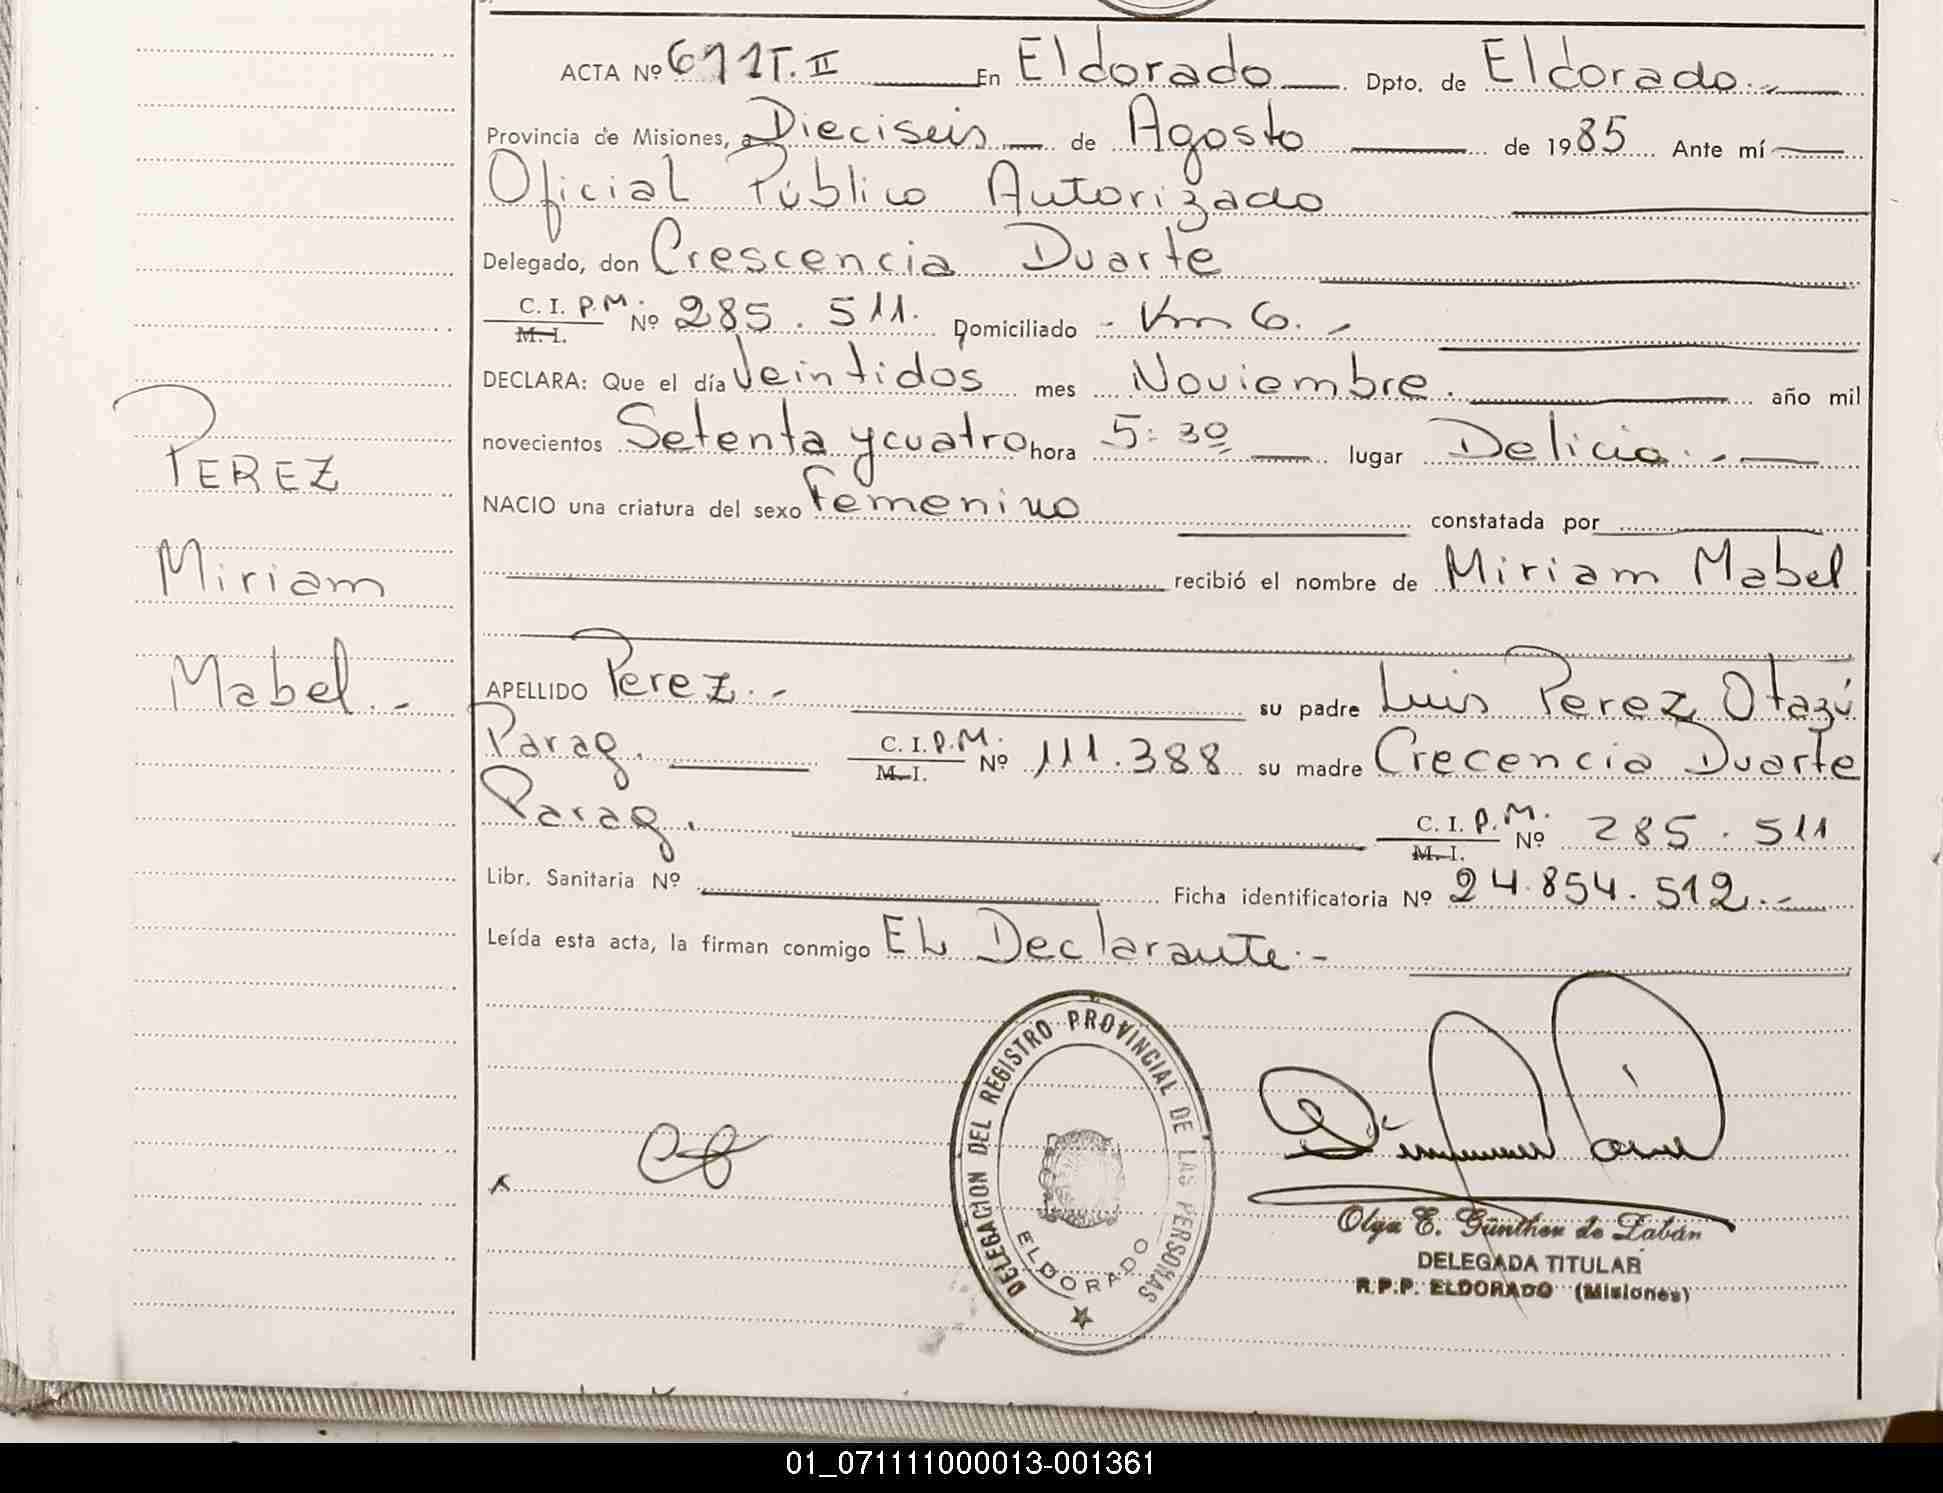 ACTA Nº 611 T. II En Eldorado Dpto. de Eldorado.-
Provincia de Misiones, a Dieciseis de Agosto de 1985 Ante mí
Oficial Público Autorizado
Delegado, don Crescencia Duarte
C. I. P.M. Nº 285.511. Domiciliado - Km 6.-
M. I.
DECLARA: Que el día Veintidos mes Noviembre. año mil
novecientos Setenta y cuatro hora 5:30 lugar Delicia.-
NACIO una criatura del sexo Femenino constatada por
recibió el nombre de Miriam Mabel
APELLIDO Perez.- su padre Luis Perez Otazú
Parag. C. I. P.M. Nº 111.388 su madre Crecencia Duarte
M. I.
Parag. C. I. P.M. Nº 285.511
M. I.
Libr. Sanitaria Nº Ficha identificatoria Nº 24.854.512.-
Leída esta acta, la firman conmigo EL Declarante.-
PEREZ
Miriam
Mabel.-
DELEGACION DEL REGISTRO PROVINCIAL DE LAS PERSONAS
ELDORADO
Olga E. Günther de Zabán
DELEGADA TITULAR
R.P.P. ELDORADO (Misiones)
01_071111000013-001361